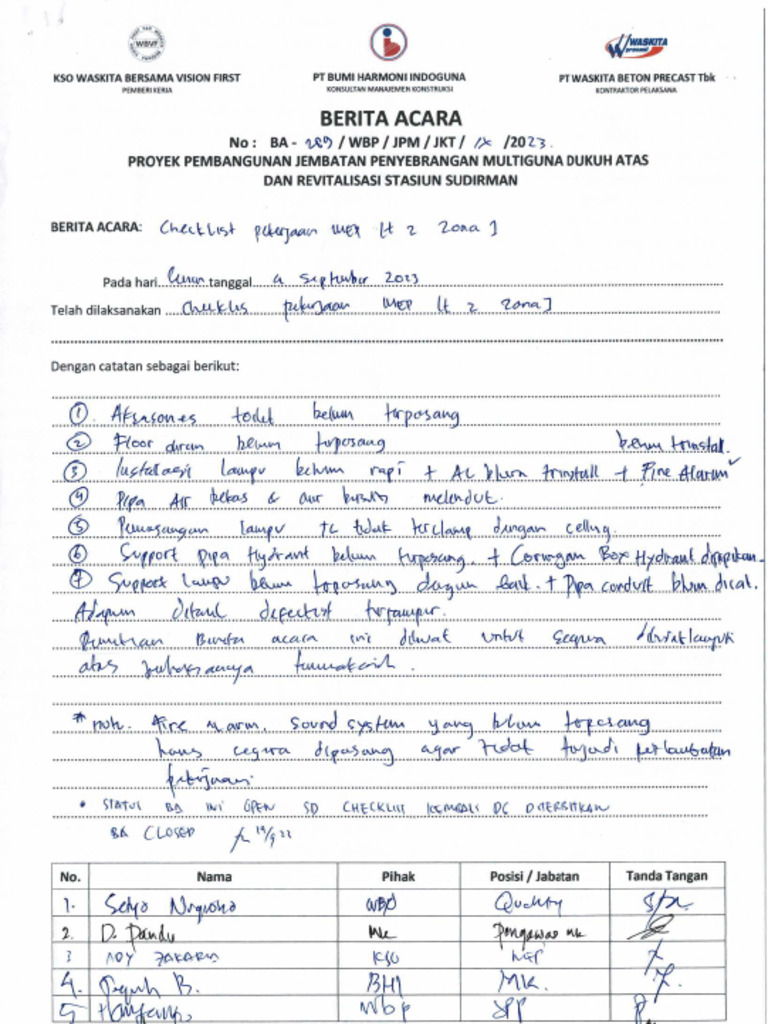 WBVF
WASKITA
precast
KSO WASKITA BERSAMA VISION FIRST
PEMBERI KERJA
PT BUMI HARMONI INDOGUNA
KONSULTAN MANAJEMEN KONSTRUKSI
PT WASKITA BETON PRECAST Tbk
KONTRAKTOR PELAKSANA
BERITA ACARA
No : BA - 289 / WBP / JPM / JKT / IX / 2023.
PROYEK PEMBANGUNAN JEMBATAN PENYEBRANGAN MULTIGUNA DUKUH ATAS
DAN REVITALISASI STASIUN SUDIRMAN
BERITA ACARA: Checklist pekerjaan MEP lt 2 Zona 1
Pada hari Senin tanggal 4 September 2023
Telah dilaksanakan checklis pekerjaan MEP lt 2 zona 1
Dengan catatan sebagai berikut:
1. Aksasories toilet belum terpasang
2 Floor drain belum terpasang belum terinstal.
3 Instalasi lampu belum rapi + AC blum trinstall + Fire Alarm
4 Pipa Air bekas & air melendut.
5 Pemasangan lampu TL tidak terclamp dengan celing.
6 Support pipa Hydrant belum terpasang. + Box Hydrant dirapikan.
7 Support lampu blum terpasang dengan baik. + Pipa conduit blum dicat.
Adapun detail defectlist terlampir.
Demikian Berita acara ini dibuat untuk segera ditindaklanjuti
atas terimakasih.
* note. Fire alarm, sound system yang blum terpasang
harus segera dipasang agar tidak terjadi perlambatan
pekerjaan.
• STATUS BA INI OPEN SD CHECKLIST KEMBALI DG DITERBITKAN
BA CLOSED
No. Nama Pihak Posisi / Jabatan Tanda Tangan
1. Setyo Nugroho WBP Quality
2. D. Pandu MK Pengawas MK
3 ROY ZAKARIA KSO MEP
4. Teguh B. BHI MK.
5 WBP SPP